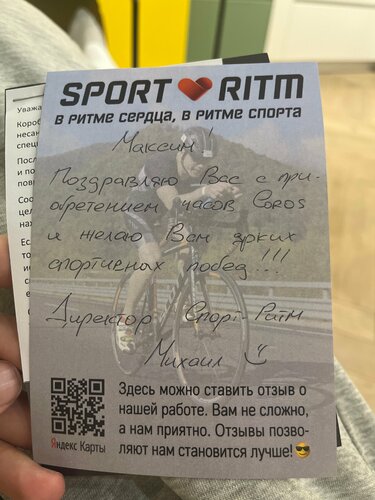 SPORT RITM
В РИТМЕ СЕРДЦА, В РИТМЕ СПОРТА
Максим!
Поздравляю Вас с при-
обретением часов Coros
и желаю Вам ярких
спортивных побед!!!
Директор Спорт-Ритм
Михаил
Здесь можно ставить отзыв о
нашей работе. Вам не сложно,
а нам приятно. Отзывы позво-
ляют нам становится лучше!
Яндекс Карты
Уважа
Короб
несан
спец
Посл
и по
пов
Соо
цел
нах
Ес